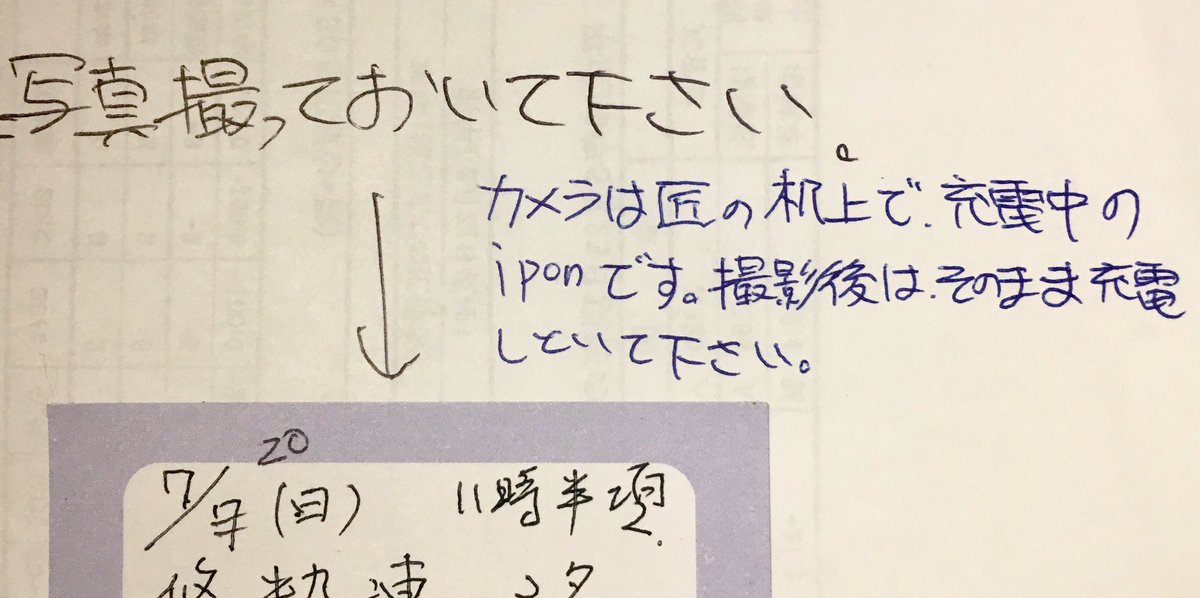 写真撮っておいて下さい。
カメラは匠の机上で、充電中の
iponです。撮影後は、そのまま充電
しといて下さい。
20
7/(日) 11時半項